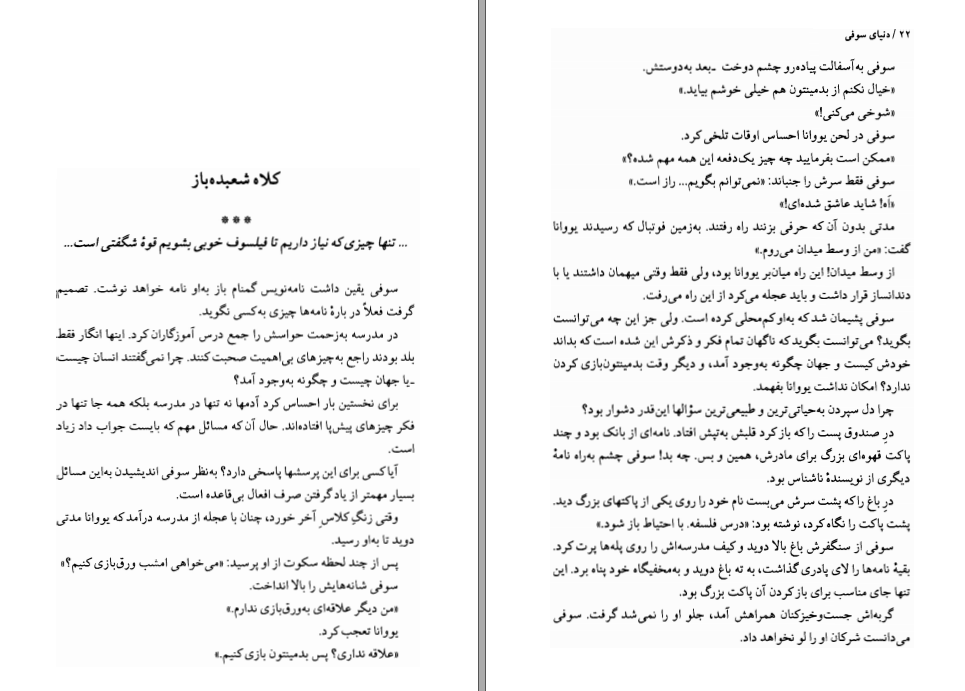 کلاه شعبده‌باز
***
... تنها چیزی که نیاز داریم تا فیلسوف خوبی بشویم قوهٔ شگفتی است...
سوفی یقین داشت نامه‌نویس گمنام باز به‌او نامه خواهد نوشت. تصمیم
گرفت فعلاً در بارهٔ نامه‌ها چیزی به‌کسی نگوید.
در مدرسه به‌زحمت حواسش را جمع درس آموزگاران کرد. اینها انگار فقط
بلد بودند راجع به‌چیزهای بی‌اهمیت صحبت کنند. چرا نمی‌گفتند انسان چیست
ـ‌یا جهان چیست و چگونه به‌وجود آمد؟
برای نخستین بار احساس کرد آدمها نه تنها در مدرسه بلکه همه جا تنها در
فکر چیزهای پیش‌پا افتاده‌اند. حال آن که مسائل مهم که بایست جواب داد زیاد
است.
آیا کسی برای این پرسشها پاسخی دارد؟ به‌نظر سوفی اندیشیدن به‌این مسائل
بسیار مهمتر از یاد گرفتن صرف افعال بی‌قاعده است.
وقتی زنگِ کلاسِ آخر خورد، چنان با عجله از مدرسه درآمد که یووانا مدتی
دوید تا به‌او رسید.
پس از چند لحظه سکوت از او پرسید: «می‌خواهی امشب ورق‌بازی کنیم؟»
سوفی شانه‌هایش را بالا انداخت.
«من دیگر علاقه‌ای به‌ورق‌بازی ندارم.»
یووانا تعجب کرد.
«علاقه نداری؟ پس بدمینتون بازی کنیم.»
۲۲ / دنیای سوفی
سوفی به‌آسفالت پیاده‌رو چشم دوخت ـ‌بعد به‌دوستش.
«خیال نکنم از بدمینتون هم خیلی خوشم بیاید.»
«شوخی می‌کنی!»
سوفی در لحن یووانا احساس اوقات تلخی کرد.
«ممکن است بفرمایید چه چیز یک‌دفعه این همه مهم شده؟»
سوفی فقط سرش را جنباند: «نمی‌توانم بگویم... راز است.»
«اَه! شاید عاشق شده‌ای!»
مدتی بدون آن که حرفی بزنند راه رفتند. به‌زمین فوتبال که رسیدند یووانا
گفت: «من از وسط میدان می‌روم.»
از وسط میدان! این راه میان‌بر یووانا بود، ولی فقط وقتی میهمان داشتند یا با
دندانساز قرار داشت و باید عجله می‌کرد از این راه می‌رفت.
سوفی پشیمان شد که به‌او کم‌محلی کرده است. ولی جز این چه می‌توانست
بگوید؟ می‌توانست بگوید که ناگهان تمام فکر و ذکرش این شده است که بداند
خودش کیست و جهان چگونه به‌وجود آمد، و دیگر وقت بدمینتون‌بازی کردن
ندارد؟ امکان نداشت یووانا بفهمد.
چرا دل سپردن به‌حیاتی‌ترین و طبیعی‌ترین سؤالها این‌قدر دشوار بود؟
درِ صندوق پست را که باز کرد قلبش به‌تپش افتاد. نامه‌ای از بانک بود و چند
پاکت قهوه‌ای بزرگ برای مادرش، همین و بس. چه بد! سوفی چشم به‌راه نامهٔ
دیگری از نویسندهٔ ناشناس بود.
درِ باغ را که پشت سرش می‌بست نام خود را روی یکی از پاکتهای بزرگ دید.
پشت پاکت را نگاه کرد، نوشته بود: «درس فلسفه. با احتیاط باز شود.»
سوفی از سنگفرش باغ بالا دوید و کیف مدرسه‌اش را روی پله‌ها پرت کرد.
بقیهٔ نامه‌ها را لای پادری گذاشت، به ته باغ دوید و به‌مخفیگاه خود پناه برد. این
تنها جای مناسب برای باز کردن آن پاکت بزرگ بود.
گربه‌اش جست‌وخیزکنان همراهش آمد، جلو او را نمی‌شد گرفت. سوفی
می‌دانست شرکان او را لَو نخواهد داد.